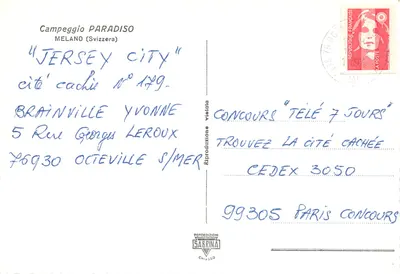 Campeggio PARADISO
MELANO (Svizzera)
"JERSEY CITY"
cité cachée N° 179.
BRAINVILLE YVONNE
5 Rue Georges LEROUX
76930 OCTEVILLE S/MER
Riproduzione vietata
CONCOURS "TÉLÉ 7 JOURS"
TROUVEZ LA CITÉ CACHÉE
CEDEX 3050
99305 PARIS CONCOURS
SARPINA